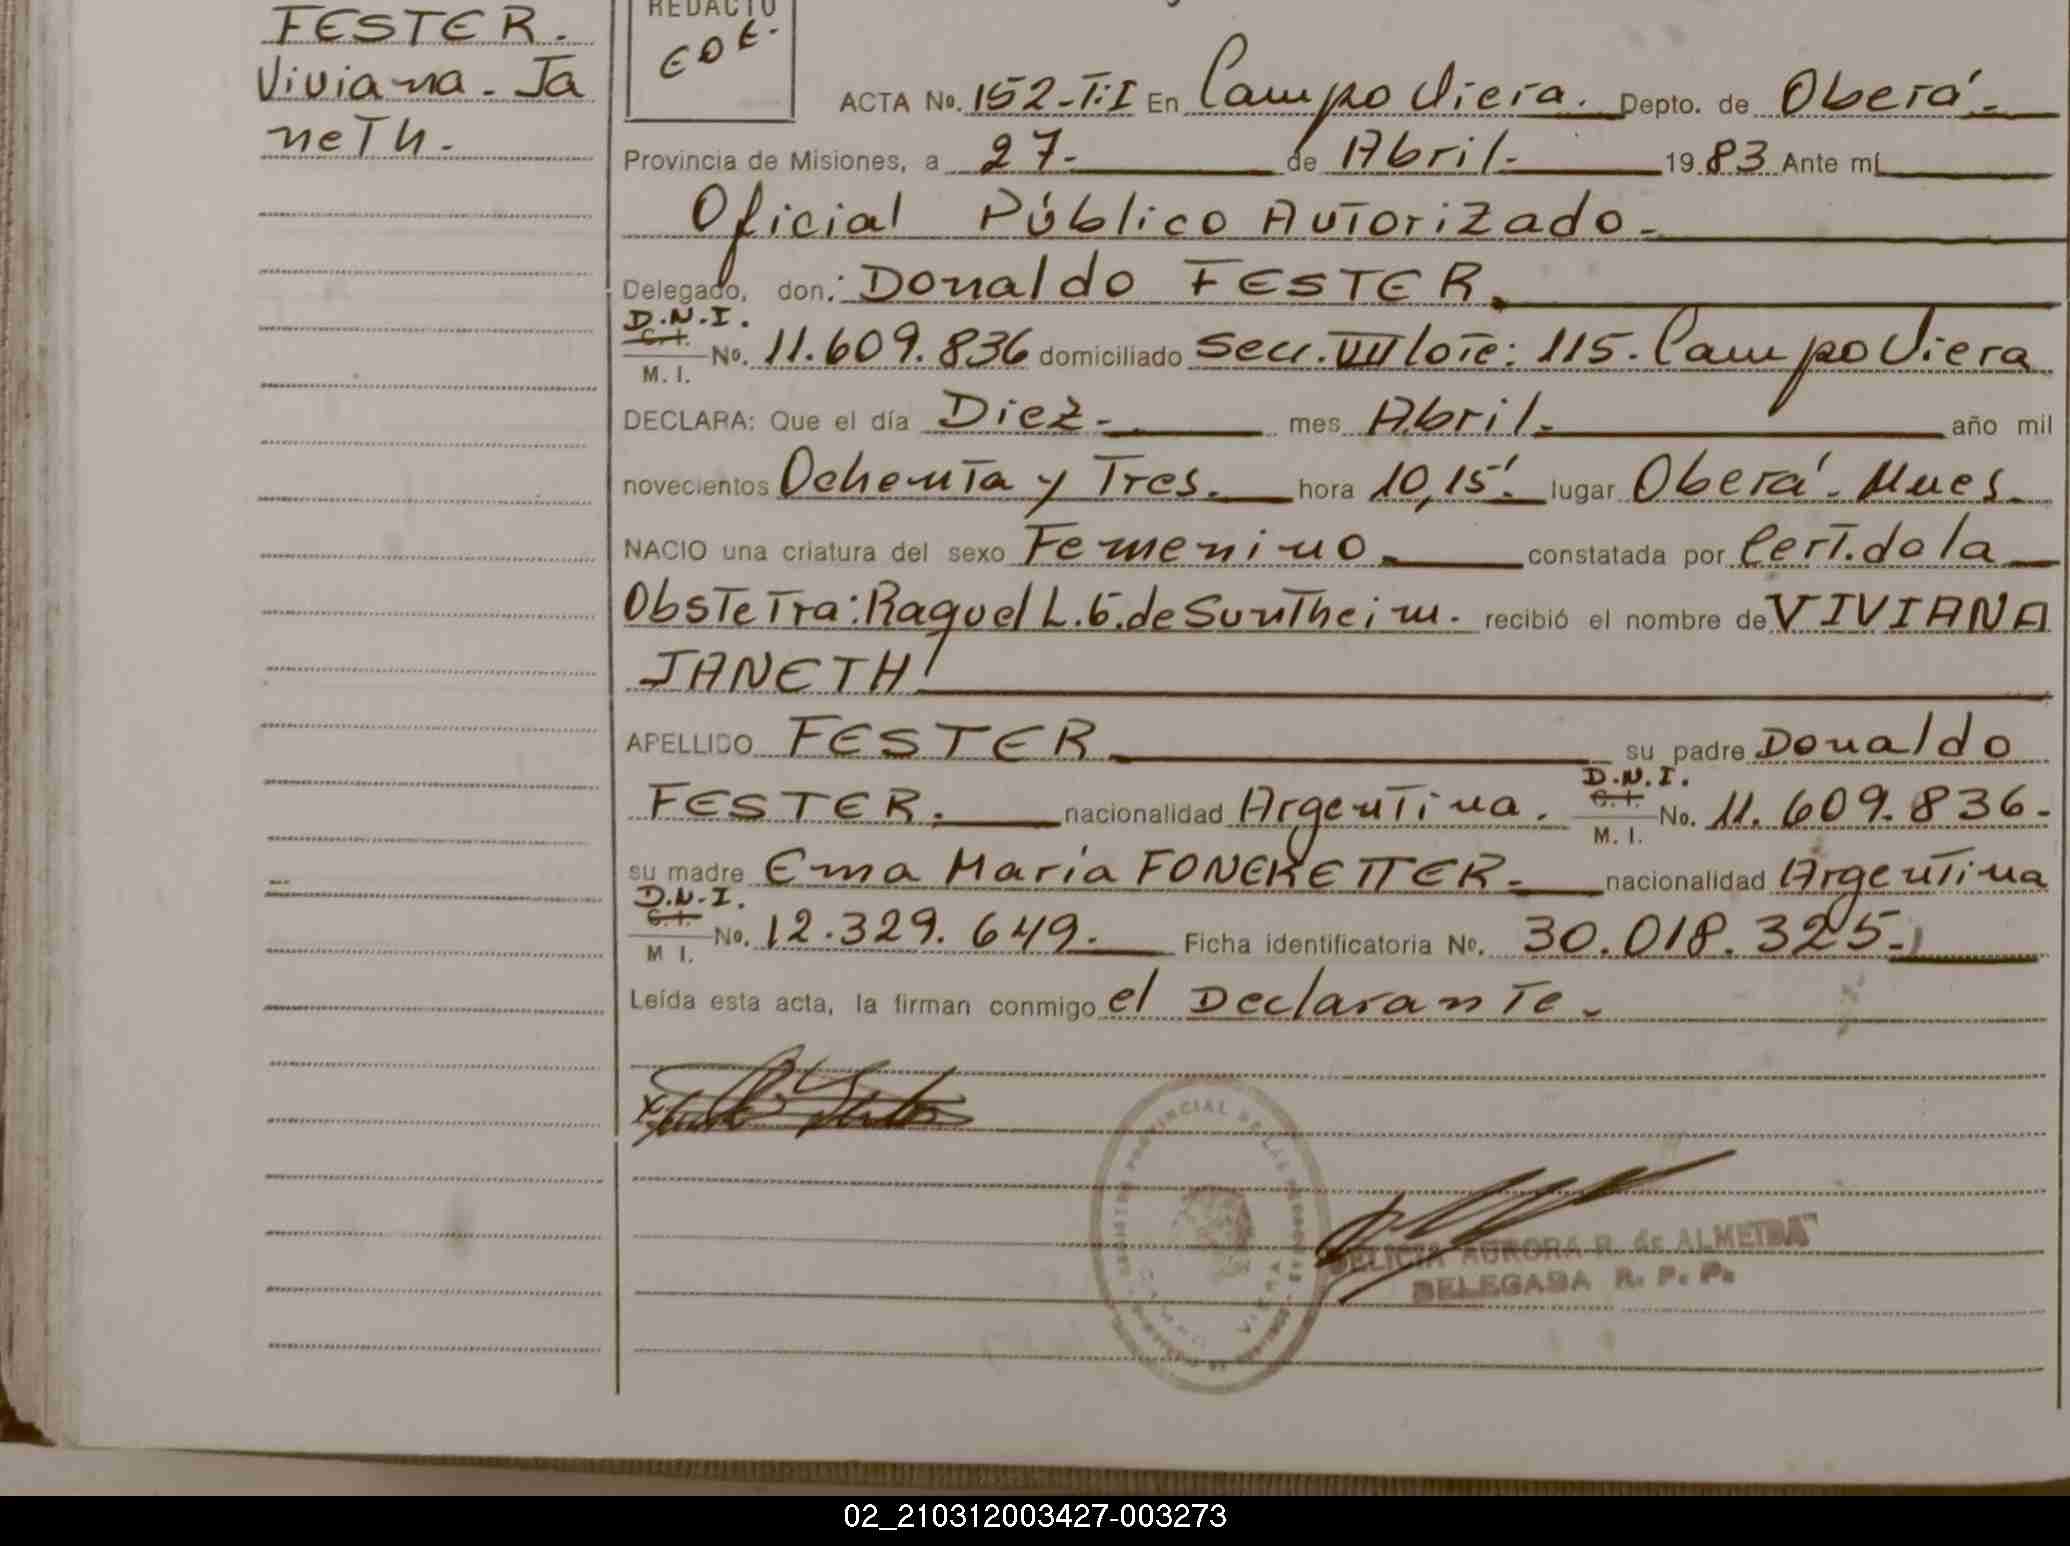 FESTER.
Viviana. Ja
neth.
REDACTO
EDE.
ACTA No. 152-T:I En Campo Viera. Depto. de Oberá.
Provincia de Misiones, a 27. de Abril. 1983 Ante mí
Oficial Público Autorizado.
Delegado, don: Donaldo FESTER.
D.N.I.
C. I.
No. 11.609.836 domiciliado Secc. VIII lote: 115. Campo Viera
M. I.
DECLARA: Que el día Diez. mes Abril. año mil
novecientos Ochenta y Tres. hora 10,15'. lugar Oberá. Mnes.
NACIO una criatura del sexo Femenino. constatada por Cert. de la
Obstetra: Raquel L. G. de Suntheim. recibió el nombre de VIVIANA
JANETH
APELLIDO FESTER su padre Donaldo
D.N.I.
C. I.
FESTER. nacionalidad Argentina. No. 11.609.836.
M. I.
su madre Ema María FONEKETTER. nacionalidad Argentina
D.N.I.
C. I.
No. 12.329.649. Ficha identificatoria No. 30.018.325.
M I.
Leída esta acta, la firman conmigo el Declarante.
PROVINCIAL DE LAS PERSONAS
CAMPO VIERA
DELICIA AURORA R. de ALMEIDA
DELEGADA R. P. P.
02_210312003427-003273